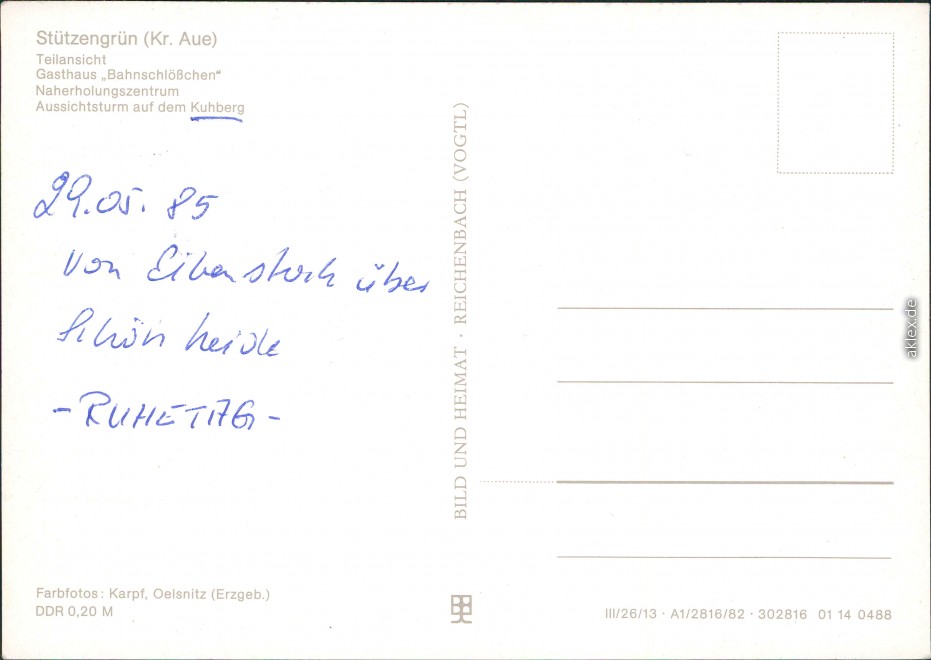 Stützengrün (Kr. Aue)
Teilansicht
Gasthaus „Bahnschlößchen“
Naherholungszentrum
Aussichtsturm auf dem Kuhberg
29.05.85
Von Eibenstock über
Schönheide
- RUHETAG -
BILD UND HEIMAT · REICHENBACH (VOGTL)
Farbfotos: Karpf, Oelsnitz (Erzgeb.)
DDR 0,20 M
III/26/13 · A1/2816/82 · 302816 01 14 0488
aklex.de